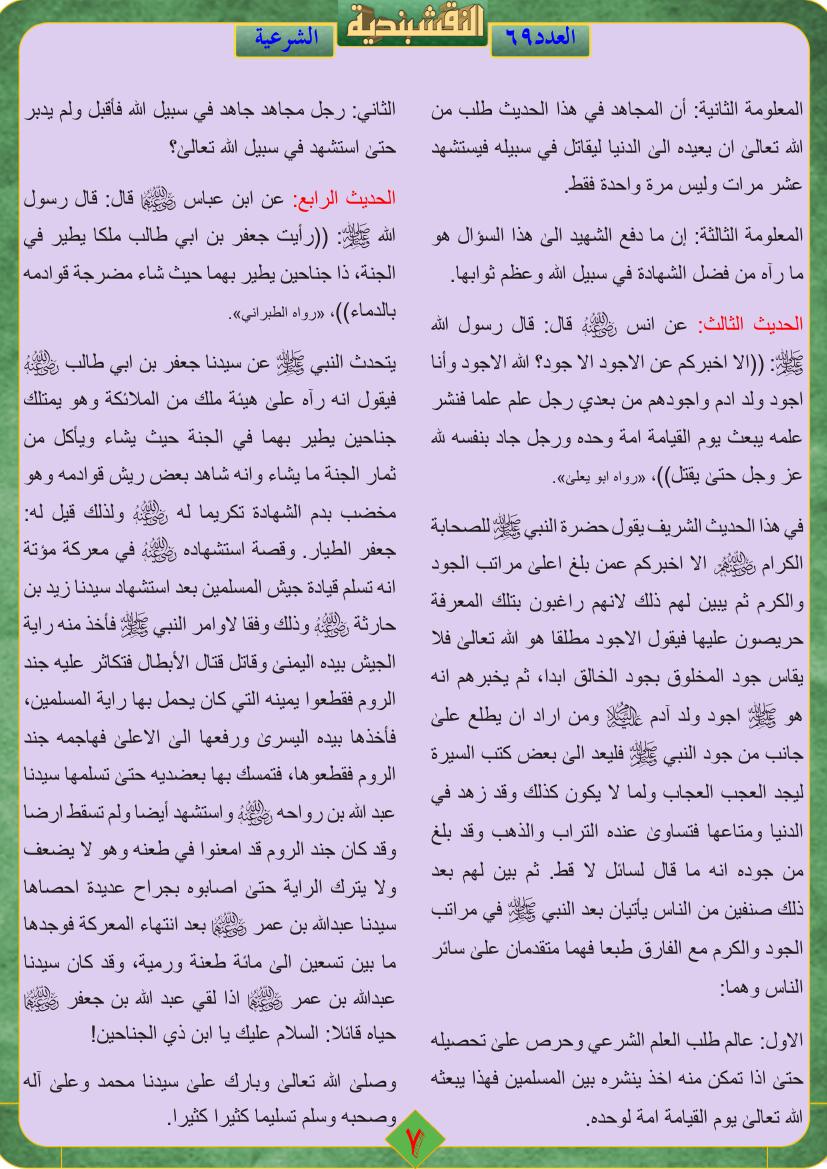 العدد٦٩
النقشبندية
الشرعية
المعلومة الثانية: أن المجاهد في هذا الحديث طلب من
الله تعالىٰ ان يعيده الىٰ الدنيا ليقاتل في سبيله فيستشهد
عشر مرات وليس مرة واحدة فقط.
المعلومة الثالثة: إن ما دفع الشهيد الىٰ هذا السؤال هو
ما رآه من فضل الشهادة في سبيل الله وعظم ثوابها.
الحديث الثالث: عن انس رضي الله عنه قال: قال رسول الله
ﷺ: ((الا اخبركم عن الاجود الا جود؟ الله الاجود وأنا
اجود ولد ادم واجودهم من بعدي رجل علم علما فنشر
علمه يبعث يوم القيامة امة وحده ورجل جاد بنفسه لله
عز وجل حتىٰ يقتل))، «رواه ابو يعلىٰ».
في هذا الحديث الشريف يقول حضرة النبي ﷺ للصحابة
الكرام رضي الله عنهم الا اخبركم عمن بلغ اعلىٰ مراتب الجود
والكرم ثم يبين لهم ذلك لانهم راغبون بتلك المعرفة
حريصون عليها فيقول الاجود مطلقا هو الله تعالىٰ فلا
يقاس جود المخلوق بجود الخالق ابدا، ثم يخبرهم انه
هو ﷺ اجود ولد آدم عليه السلام ومن اراد ان يطلع علىٰ
جانب من جود النبي ﷺ فليعد الىٰ بعض كتب السيرة
ليجد العجب العجاب ولما لا يكون كذلك وقد زهد في
الدنيا ومتاعها فتساوىٰ عنده التراب والذهب وقد بلغ
من جوده انه ما قال لسائل لا قط. ثم بين لهم بعد
ذلك صنفين من الناس يأتيان بعد النبي ﷺ في مراتب
الجود والكرم مع الفارق طبعا فهما متقدمان علىٰ سائر
الناس وهما:
الاول: عالم طلب العلم الشرعي وحرص علىٰ تحصيله
حتىٰ اذا تمكن منه اخذ ينشره بين المسلمين فهذا يبعثه
الله تعالىٰ يوم القيامة امة لوحده.
الثاني: رجل مجاهد جاهد في سبيل الله فأقبل ولم يدبر
حتىٰ استشهد في سبيل الله تعالىٰ؟
الحديث الرابع: عن ابن عباس رضي الله عنهما قال: قال رسول
الله ﷺ: ((رأيت جعفر بن ابي طالب ملكا يطير في
الجنة، ذا جناحين يطير بهما حيث شاء مضرجة قوادمه
بالدماء))، «رواه الطبراني».
يتحدث النبي ﷺ عن سيدنا جعفر بن ابي طالب رضي الله عنه
فيقول انه رآه علىٰ هيئة ملك من الملائكة وهو يمتلك
جناحين يطير بهما في الجنة حيث يشاء ويأكل من
ثمار الجنة ما يشاء وانه شاهد بعض ريش قوادمه وهو
مخضب بدم الشهادة تكريما له رضي الله عنه ولذلك قيل له:
جعفر الطيار. وقصة استشهاده رضي الله عنه في معركة مؤتة
انه تسلم قيادة جيش المسلمين بعد استشهاد سيدنا زيد بن
حارثة رضي الله عنه وذلك وفقا لاوامر النبي ﷺ فأخذ منه راية
الجيش بيده اليمنىٰ وقاتل قتال الأبطال فتكاثر عليه جند
الروم فقطعوا يمينه التي كان يحمل بها راية المسلمين،
فأخذها بيده اليسرىٰ ورفعها الىٰ الاعلىٰ فهاجمه جند
الروم فقطعوها، فتمسك بها بعضديه حتىٰ تسلمها سيدنا
عبد الله بن رواحه رضي الله عنه واستشهد أيضا ولم تسقط ارضا
وقد كان جند الروم قد امعنوا في طعنه وهو لا يضعف
ولا يترك الراية حتىٰ اصابوه بجراح عديدة احصاها
سيدنا عبدالله بن عمر رضي الله عنهما بعد انتهاء المعركة فوجدها
ما بين تسعين الىٰ مائة طعنة ورمية، وقد كان سيدنا
عبدالله بن عمر رضي الله عنهما اذا لقي عبد الله بن جعفر رضي الله عنهما
حياه قائلا: السلام عليك يا ابن ذي الجناحين!
وصلىٰ الله تعالىٰ وبارك علىٰ سيدنا محمد وعلىٰ آله
وصحبه وسلم تسليما كثيرا كثيرا.
٧